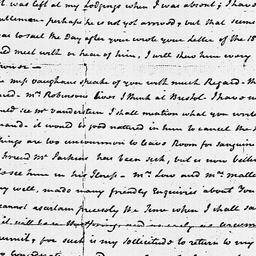 it was left at my Lodgings when I was absent; I have
Gentleman - perhaps he is not yet arrived, but that seems
was to sail the Day after you wrote your Letter of the 18
and meet with or hear of him, I will shew him every
service
Miss Vaughans speaks of you with much Regard - th
Mrs Robinson lives I think at Bristol. I have
see Mr Vanderstein I shall mention what you wr
hand. it would be good natured in him to cancel the
things are too uncommon to leave Room for sanguine
Friend Mrs Jenkins has been sick, but is now better
to see him in his Illness - Mr Low and Mr Matt
very well, made many friendly Enquiries about You
cannot ascertain precisely the Time when I shall sa
it will be in the Spring, and as early as circum
permit, for such is my Sollicitude to return to my